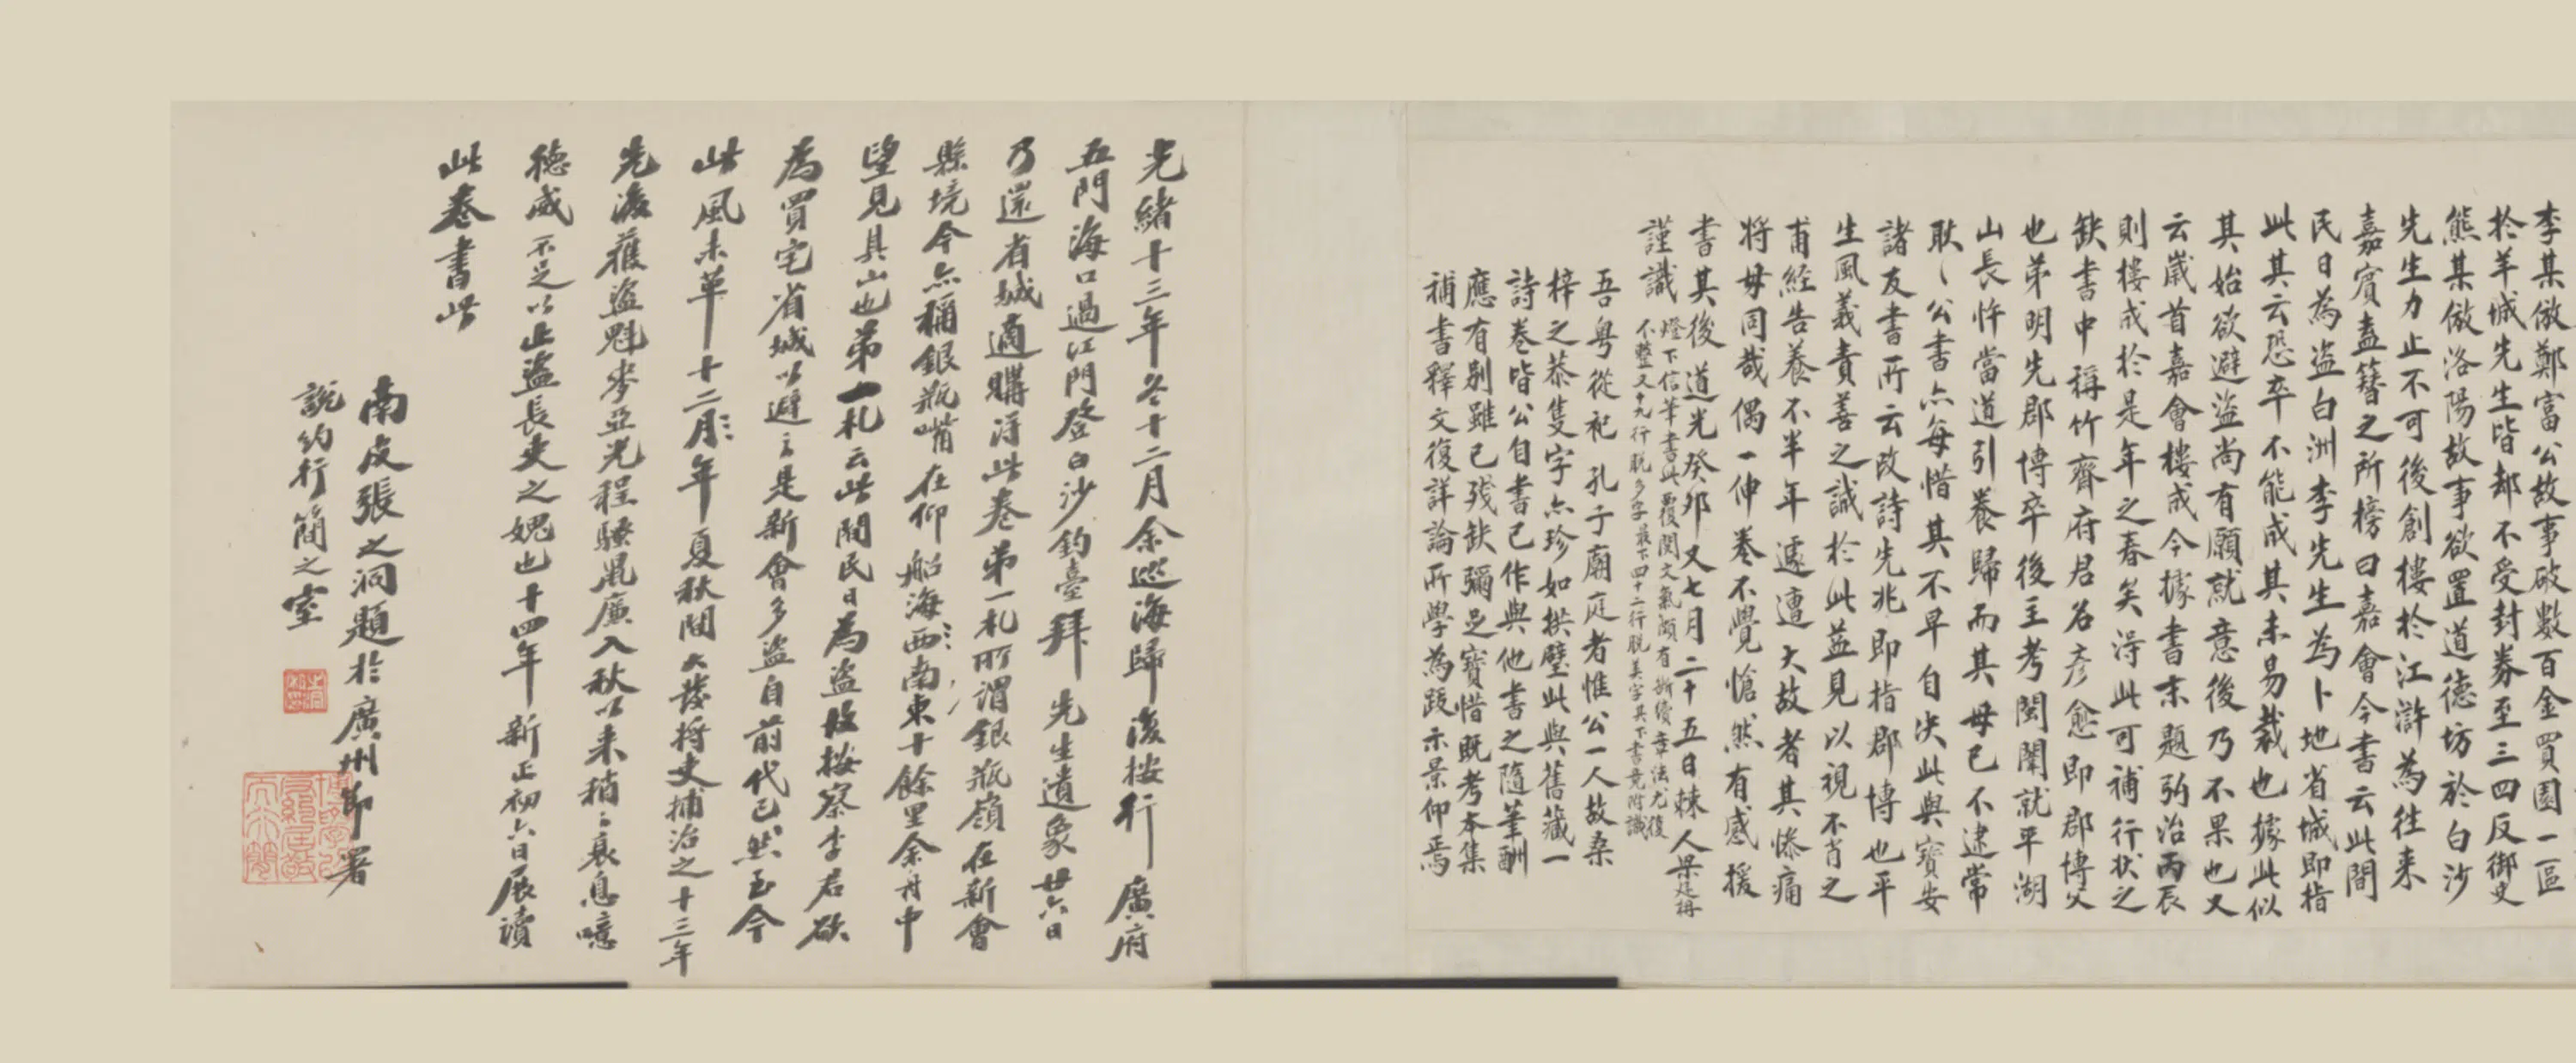 李某倣鄭富公故事破數百金買園一區
於羊城先生皆却不受封券至三四反御史
熊某倣洛陽故事欲置道德坊於白沙
先生力止不可後創樓於江滸為往来
嘉賓盍簪之所榜曰嘉會今書云此間
民日為盗白洲李先生為卜地省城即指
此其云恐卒不能成其未易裁也據此似
其始欲避盗尚有願就意後乃不果也又
云歲首嘉會樓成今據書末題弘治丙辰
則樓成於是年之春矣淂此可補行狀之
缺書中稱竹齋府君名彦愈即郡博父
也弟明先郡博卒後主考閩闈就平湖
山長怍當道引養歸而其母已不逮常
耿〻公書亦每惜其不早自决此與寶安
諸友書所云改詩先兆即指郡博也平
生風義責善之誠於此益見以視不肖之
甫經告養不半年遽遭大故者其慘痛
将毋同哉偶一伸卷不覺愴然有感援
書其後道光癸卯又七月二十五日棘人梁廷枏
謹識 燈下信筆書此覆閱文氣頗有斷續章法尤復
不整又十九行脱多字最下四十二行脱美字其下書竟附識
吾粤從祀 孔子廟庭者惟公一人故桑
梓之恭隻字亦珍如拱璧此與舊藏一
詩卷皆公自書已作與他書之隨筆酬
應有别雖已殘缺彌足寶惜既考本集
補書釋文復詳論所學為跋示景仰焉
光緒十三年冬十二月余巡海歸復按行廣府
五門海口過江門登白沙釣臺拜 先生遺象廿六日
乃還省城適購淂此卷弟一札所謂銀瓶嶺在新會
縣境今亦稱銀瓶嘴在仰船海西南東十餘里余舟中
望見其山也弟一札云此間民日為盗故按察李君欲
為買宅省城以避之是新會多盗自前代已然至今
此風未革十二月年夏秋間大發将吏捕治之十三年
先後獲盗魁麥亞光程驥嵐廣入秋以来稍〻衰息噫
德威不足以止盗長吏之媿也十四年新正初六日展讀
此卷書此
南皮張之洞題於廣州節署
説約行簡之室